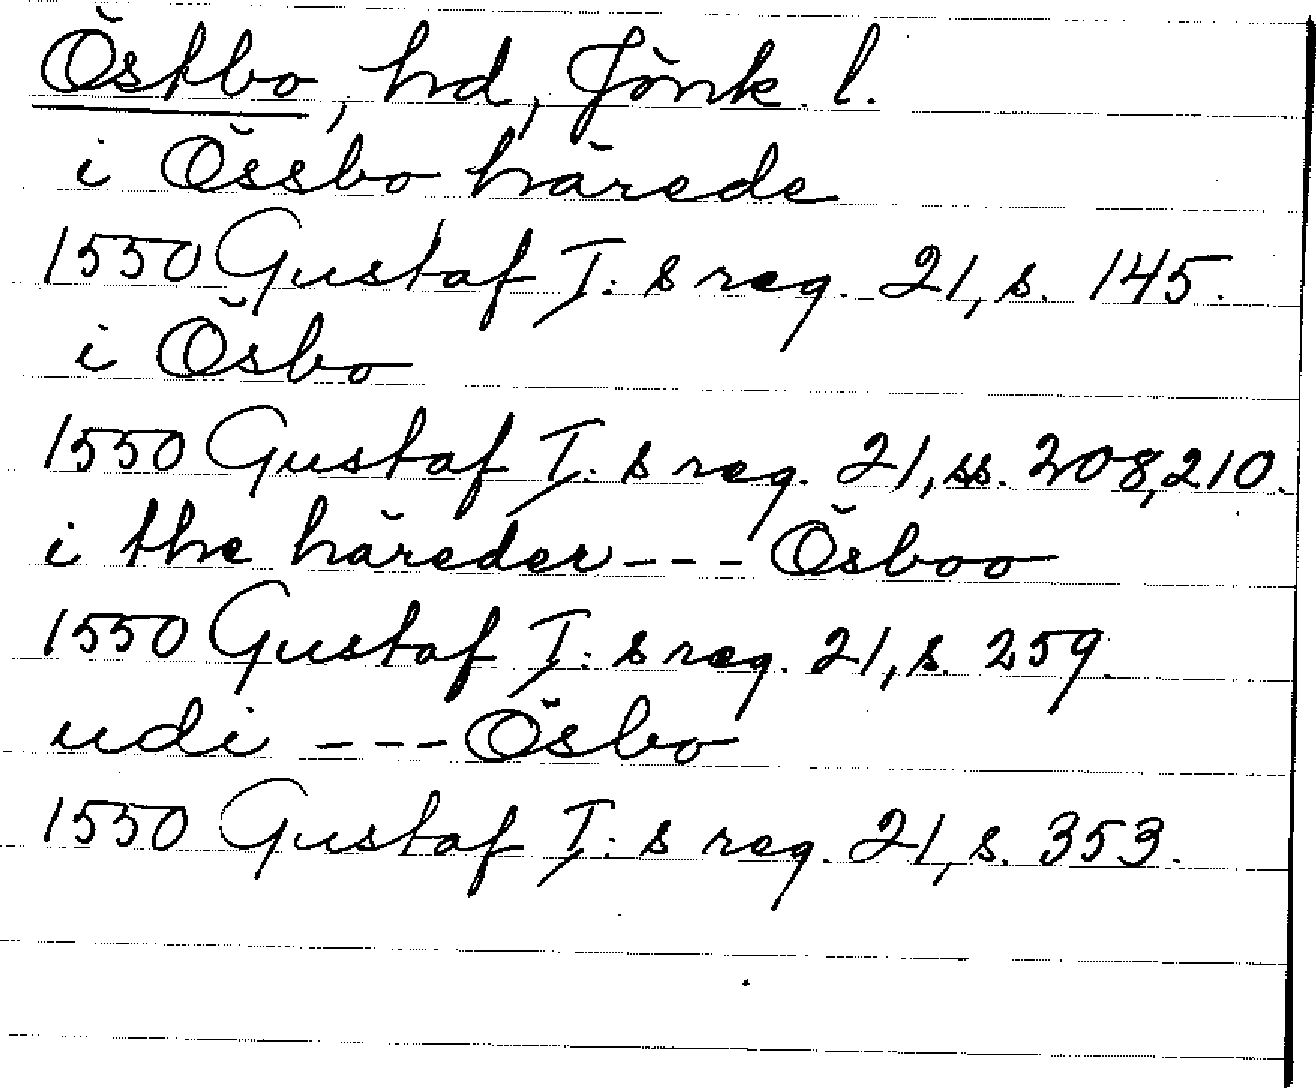 Östbo, hd, Jönk. l.
i Össbo härede
1550 Gustaf I:s reg. 21, s. 145.
i Ösbo
1550 Gustaf I:s reg. 21, ss. 208, 210.
i the häreder --- Ösboo
1550 Gustaf I:s reg. 21, s. 259.
udi --- Ösbo
1550 Gustaf I:s reg. 21, s. 353.